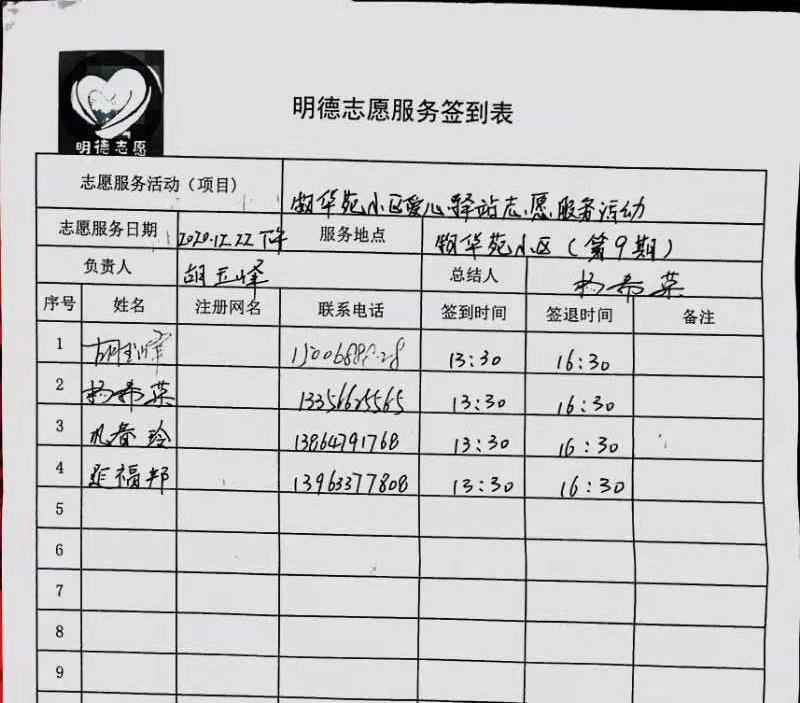 明德志愿
明德志愿服务签到表
志愿服务活动（项目） 翰华苑小区爱心驿站志愿服务活动
志愿服务日期 2020.12.22下午 服务地点 翰华苑小区（第9期）
负责人 胡玉峰 总结人 杨希英
序号 姓名 注册网名 联系电话 签到时间 签退时间 备注
1 13:30 16:30
2 杨希英 13356625565 13:30 16:30
3 春玲 13864791768 13:30 16:30
4 福邦 13963377808 13:30 16:30
5
6
7
8
9